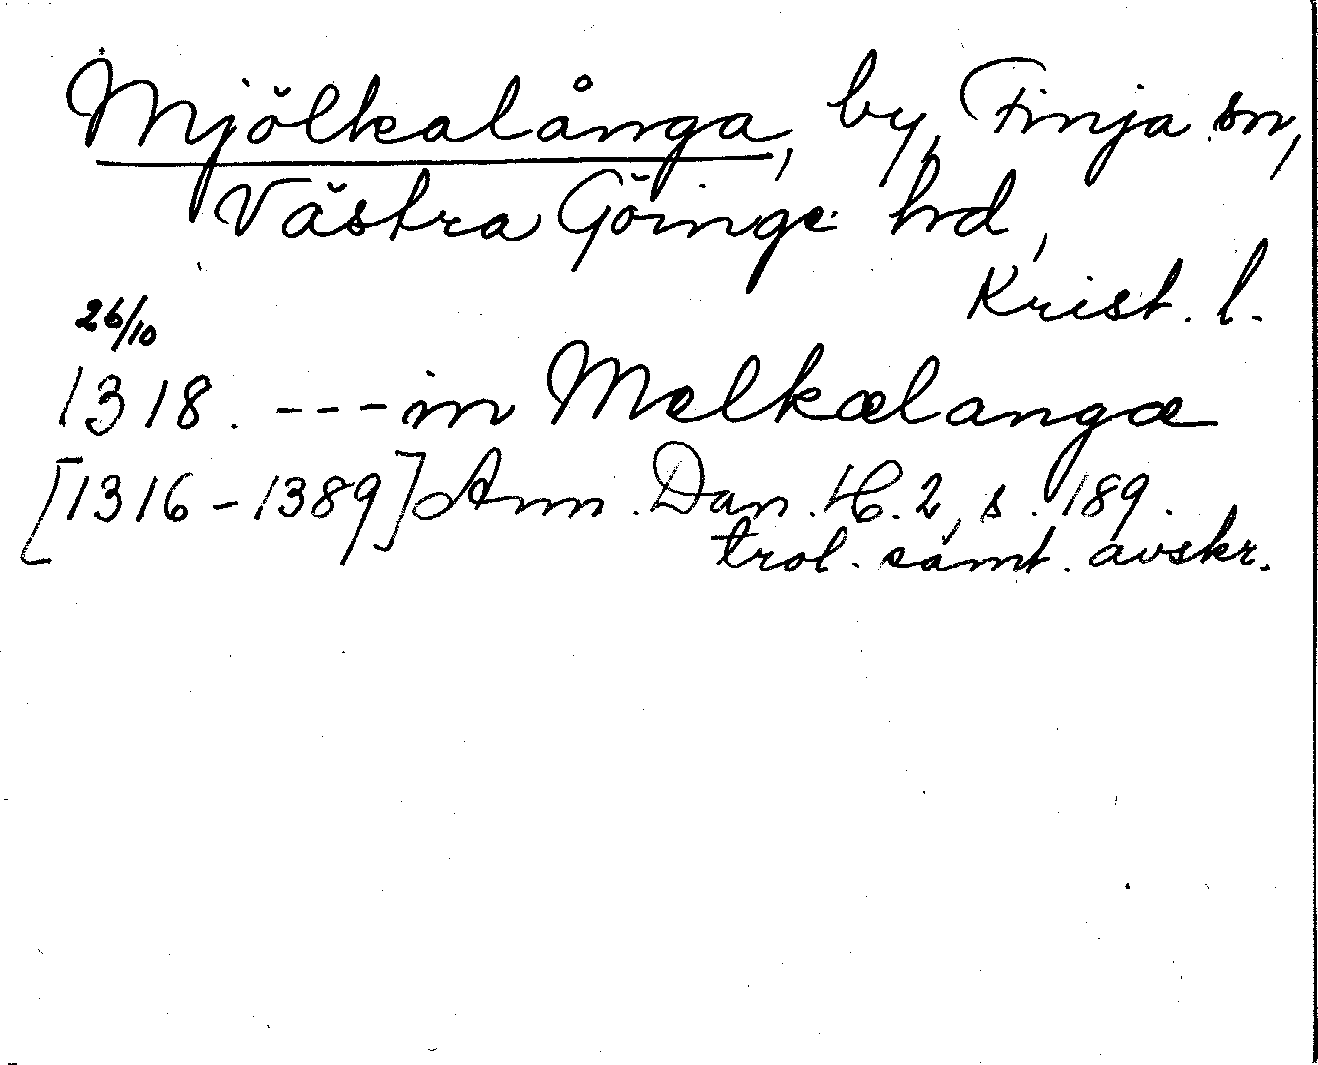 Mjölkalånga, by, Finja sn,
Västra Göinge hd,
Krist. l.
26/10
1318. --- in Mælkælangæ
[1316-1389] Ann. Dan. H. 2, s. 189.
trol. samt. avskr.